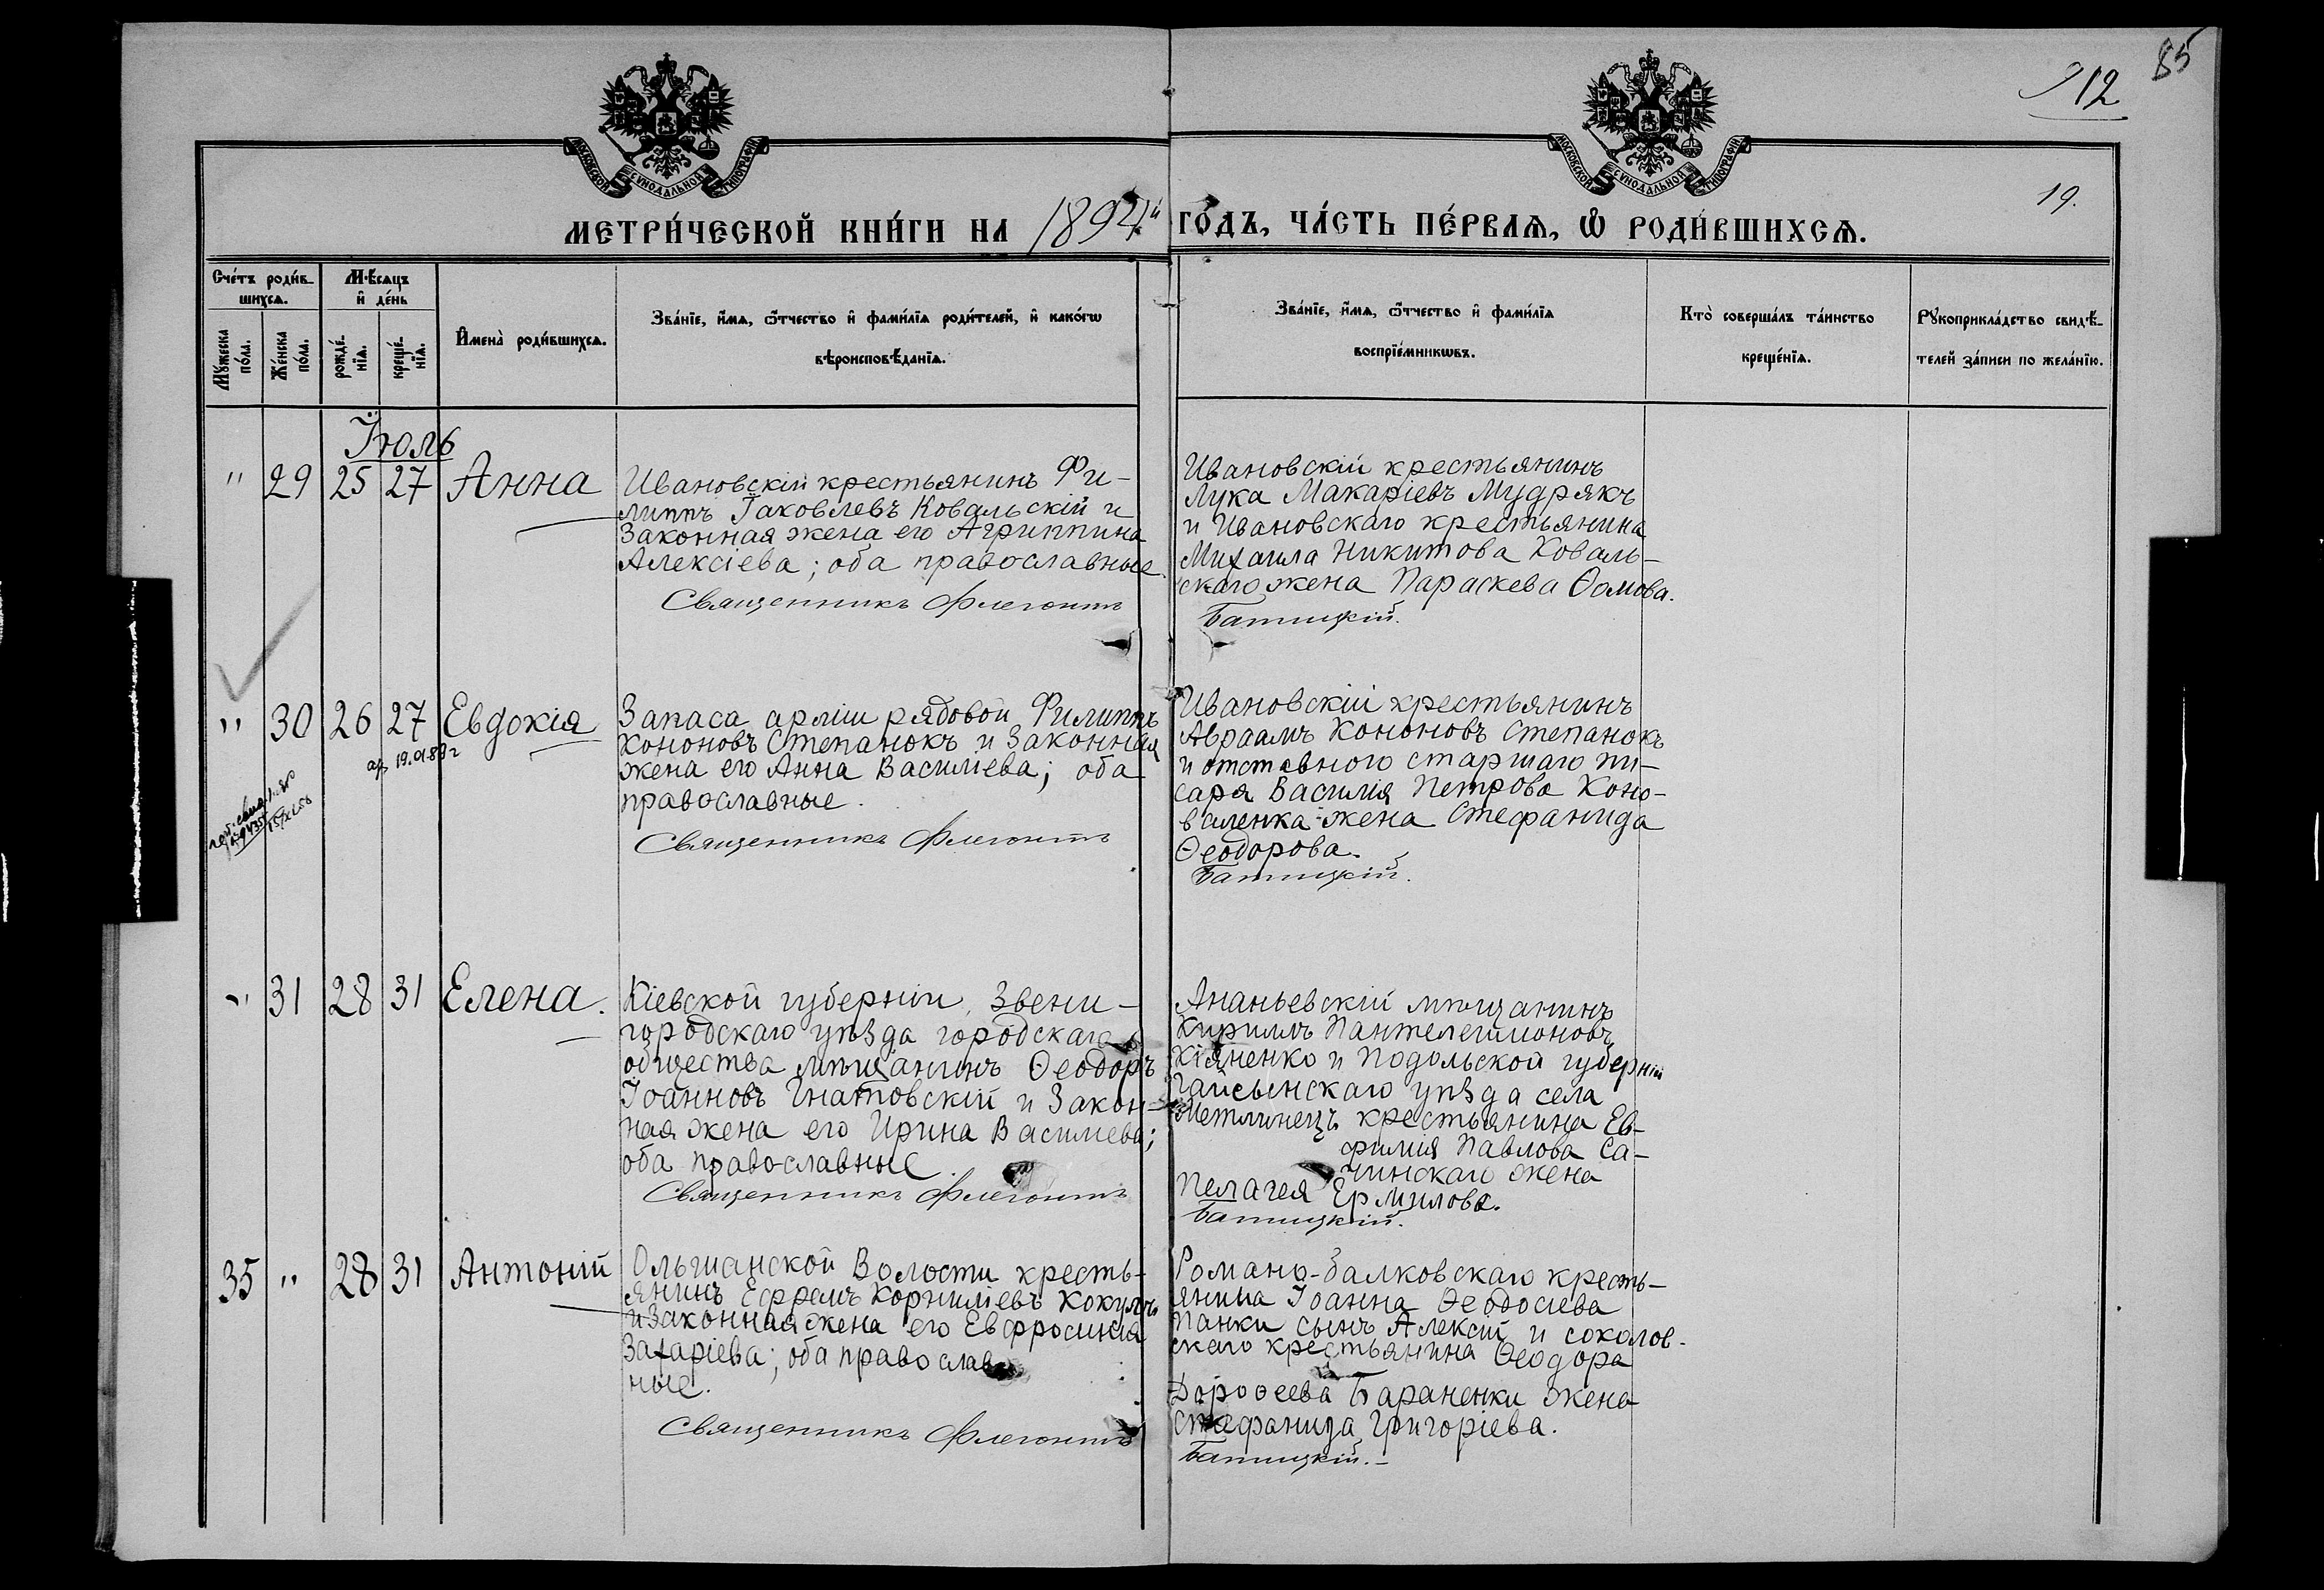 85
112
19.
МОСКОВСКОЙ СѴНОДАЛЬНОЙ ТИПОГРАФІИ
МОСКОВСКОЙ СѴНОДАЛЬНОЙ ТИПОГРАФІИ
МЕТРИ́ЧЕСКОЙ КНИ́ГИ НА 1894й ГО́ДЪ, ЧА́СТЬ ПЕ́РВАѦ, Ѽ РОДИ́ВШИХСѦ.
Сче́тъ роди́в-
шихсѧ.
Мꙋ́жеска по́ла.
Же́нска по́ла.
Мѣ́сѧцъ
и҆ де́нь
рожде́-
нїѧ.
креще́-
нїѧ.
И҆мена̀ роди́вшихсѧ.
Зва́нїе, и҆́мѧ, ѻ҆́тчество и҆ фами́лїѧ роди́телей, и҆ како́гѡ
вѣроисповѣ́данїѧ.
Зва́нїе, и҆́мѧ, ѻ҆́тчество и҆ фами́лїѧ
воспрїе́мникѡвъ.
Кто̀ соверша́лъ та́инство
креще́нїѧ.
Рꙋкоприкла́дство свидѣ́-
телей за́писи по жела́нїю.
Іюль
" 29 25 27 Анна
Ивановскій крестьянинъ Фи-
липпъ Іаковлевъ Ковальскій и
Законная жена его Агриппина
Алексіева; оба православные.
Священникъ Флегонтъ
Ивановскій крестьянинъ
Лука Макаріевъ Мудрякъ
и Ивановскаго крестьянина
Михаила Никитова Коваль-
скаго жена Параскева Ѳомова.
Батицкій.
" 30 26 27 Евдокія
19.01.89г
Запаса арміи рядовой Филиппъ
Кононовъ Степанокъ и Законная
жена его Анна Василіева; оба
православные.
Священникъ Флегонтъ
Ивановскій крестьянинъ
Авраамъ Кононовъ Степанокъ
и отставного старшаго пи-
саря Василія Петрова Коно-
валенка жена Стефанида
Ѳеодорова.
Батицкій.
" 31 28 31 Елена.
Кіевской губерніи, Звени-
городскаго уѣзда городскаго
общества мѣщанинъ Ѳеодоръ
Іоанновъ Гнатовскій и Закон-
ная жена его Ирина Василіева;
оба православные.
Священникъ Флегонтъ
Ананьевскій мѣщанинъ
Кириллъ Пантелеимоновъ
Кіяненко и Подольской губерніи
Гайсынскаго уѣзда села
Метлинецъ крестьянина Ев-
фимія Павлова Са-
чинскаго жена
Пелагея Ермилова.
Батицкій.
35 " 28 31 Антоній
Ольшанской Волости кресть-
янинъ Ефремъ Корниліевъ
и Законная жена его Евфросинія
Захаріева; оба православ-
ные.
Священникъ Флегонтъ
Романо-балковскаго кресть-
янина Іоанна Ѳеодосіева
Панки сынъ Алексій и соколов-
скаго крестьянина Ѳеодора
Дороѳеева Бараненки жена
Стефанида Григоріева.
Батицкій.-